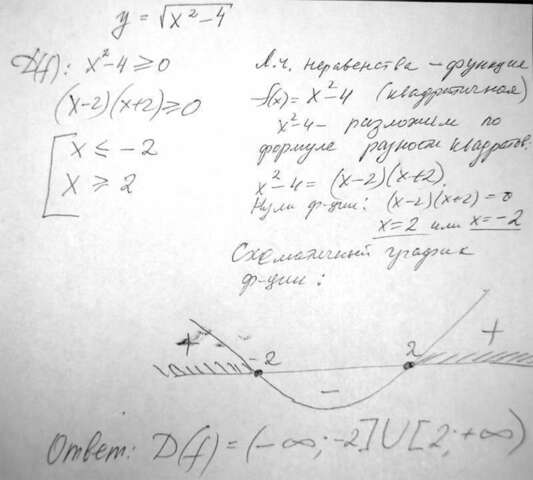 y = √x²-4
D(f): x²-4 ≥ 0
(x-2)(x+2) ≥ 0
x ≤ -2
x ≥ 2
Л.ч. неравенства – функция
f(x) = x²-4 (квадратичная)
x²-4 – разложим по
формуле разности квадратов.
x²-4 = (x-2)(x+2).
Нули ф-ции: (x-2)(x+2) = 0
x = 2 или x = -2
Схематичный график
ф-ции:
+ -2 2 +
–
Ответ: D(f) = (-∞; -2] U [2; +∞)